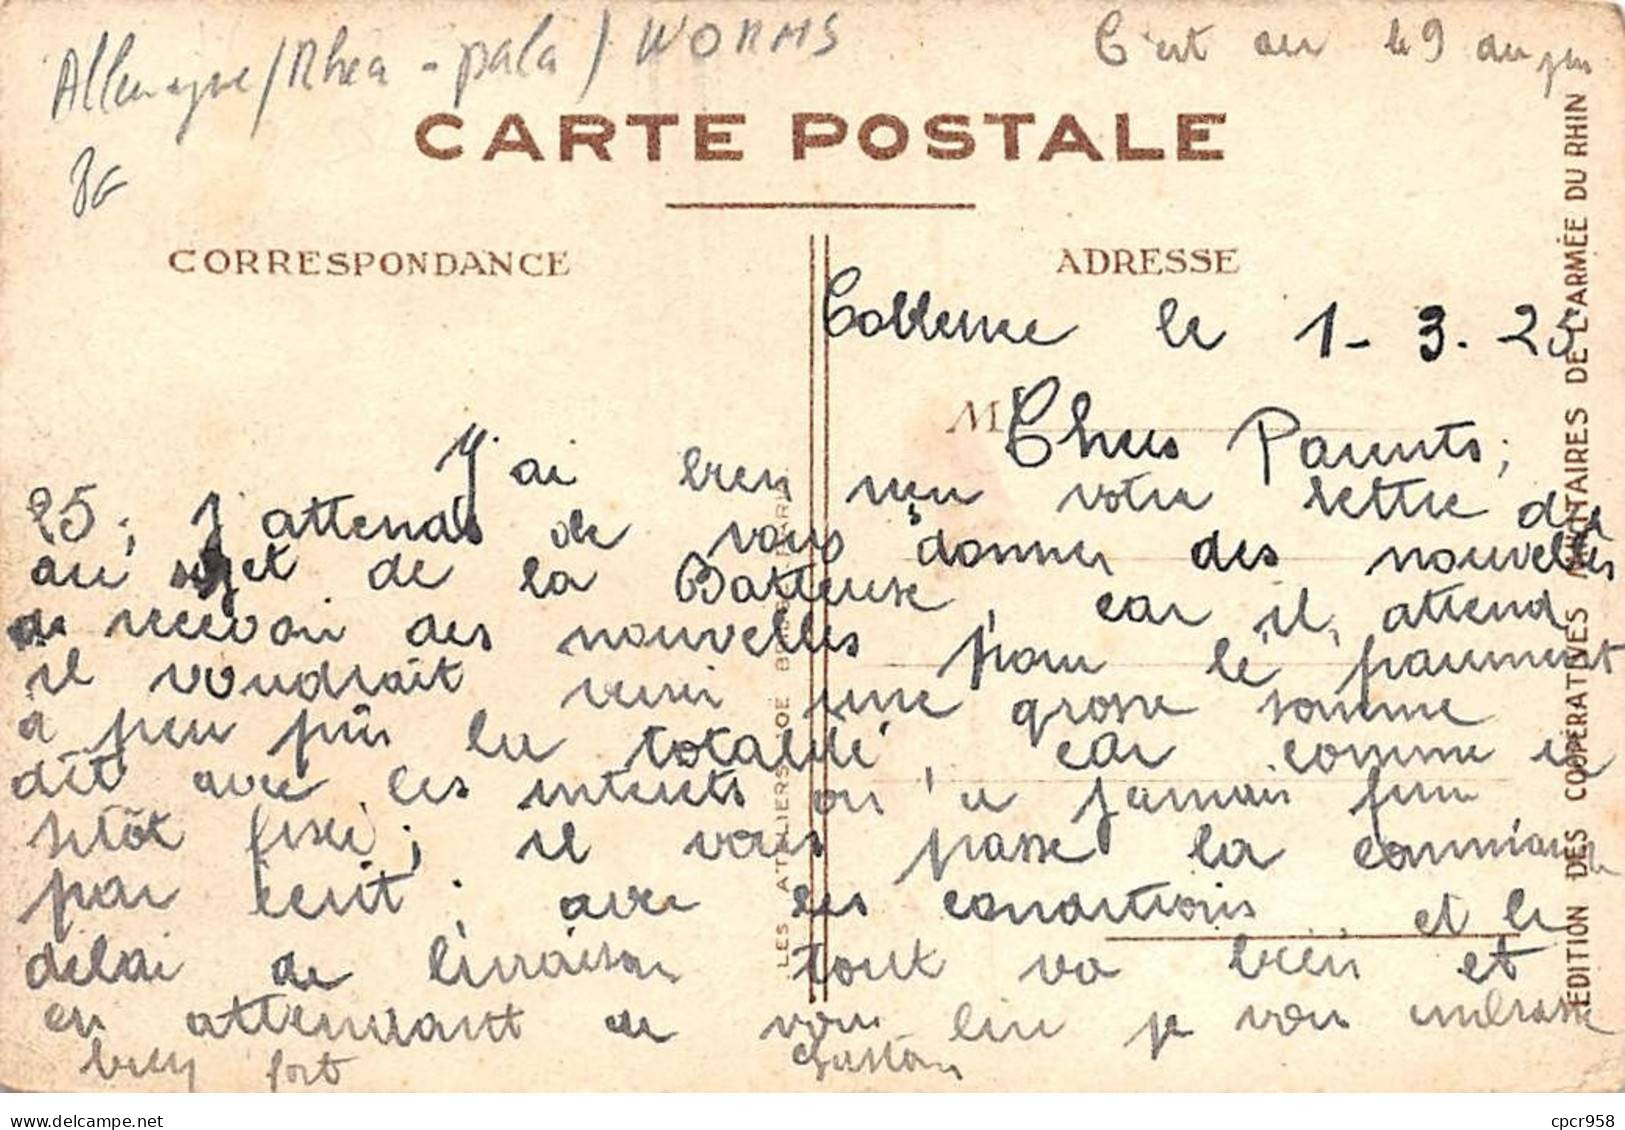 Allemagne / Rhea - pala / WORMS
C'est au 49 au
CARTE POSTALE
CORRESPONDANCE
ADRESSE
Coblence le 1-3.25
M
Chers Parents;
J'ai bien reçu votre lettre du
25; J'attends de vous donner des nouvelles
au sujet de la Batteuse, car il, attend
de recevoir des nouvelles, pour le paiement
il voudrait une grosse somme
à peu près la totalité, car comme il
dit avec les interets on a jamais
plutôt fixé; il vous passe la
par écrit; avec les conditions et le
délai de livraison tout va bien et
en attendant de vous lire je vous embrasse
bien fort Gaston
LES ATELIERS
EDITION DES COOPÉRATIVES MILITAIRES DE L'ARMÉE DU RHIN
delcampe.net
cpcr958